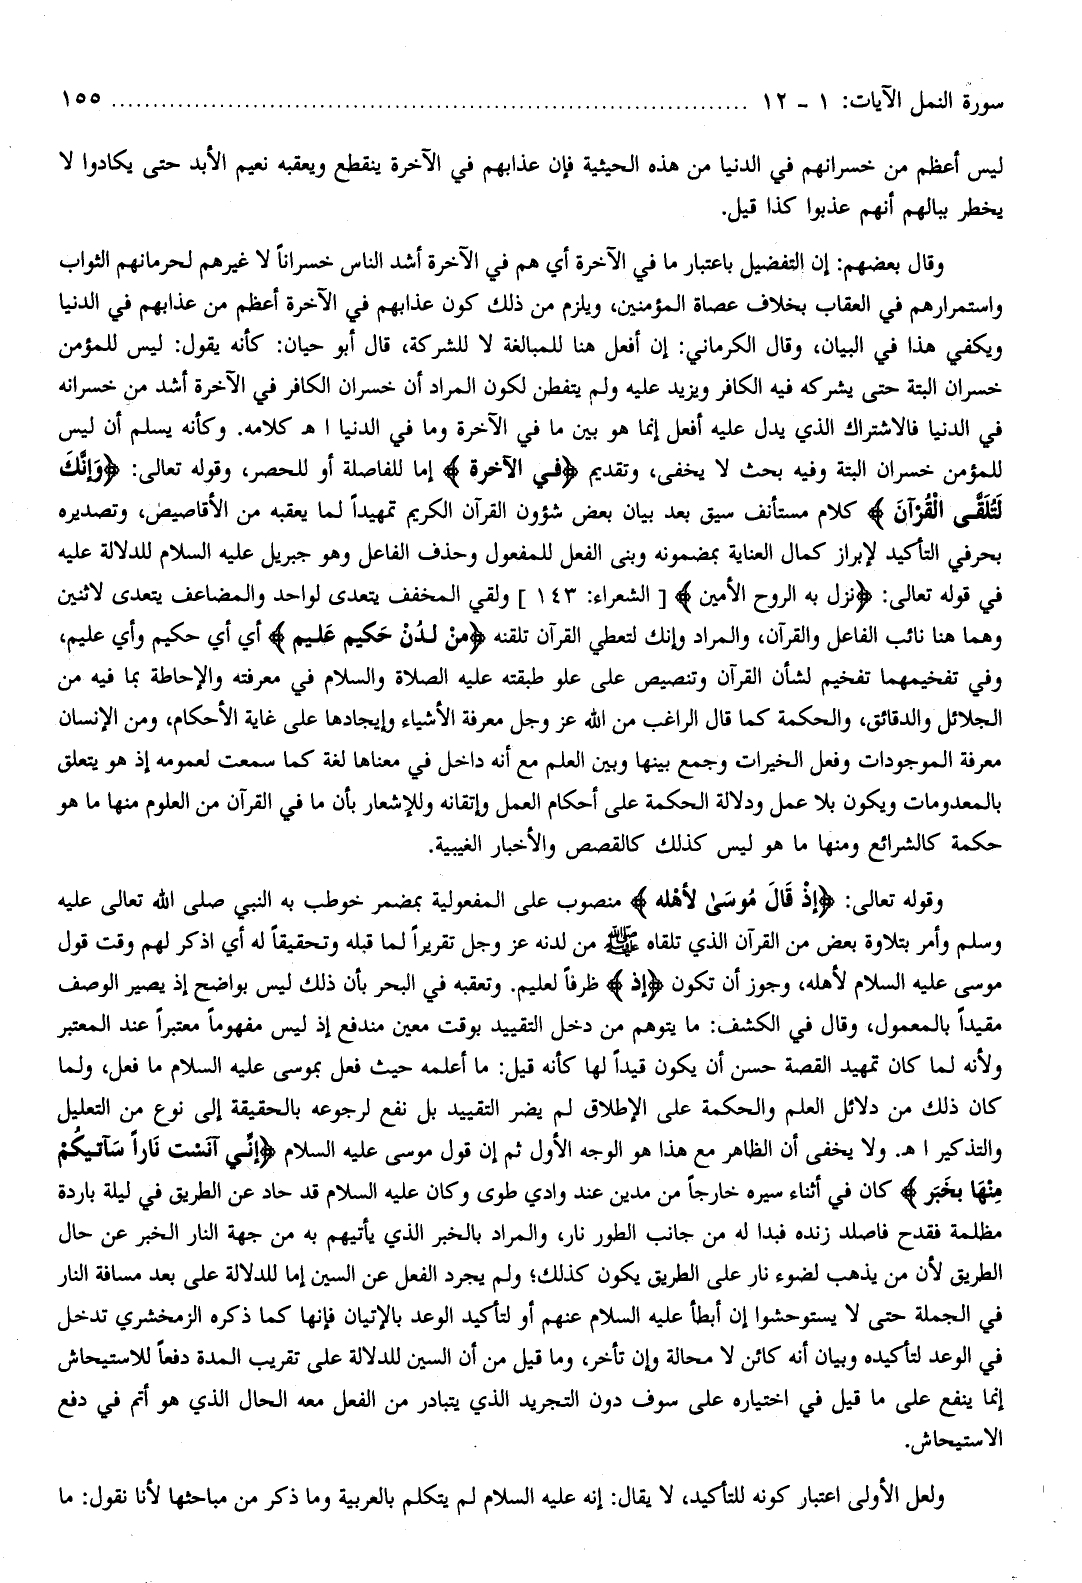 سورة النمل الآيات: ١ - ١٢ ........................................................................... ١٥٥
ليس أعظم من خسرانهم في الدنيا من هذه الحيثية فإن عذابهم في الآخرة ينقطع ويعقبه نعيم الأبد حتى يكادوا لا
يخطر ببالهم أنهم عذبوا كذا قيل.
وقال بعضهم: إن التفضيل باعتبار ما في الآخرة أي هم في الآخرة أشد الناس خسراناً لا غيرهم لحرمانهم الثواب
واستمرارهم في العقاب بخلاف عصاة المؤمنين، ويلزم من ذلك كون عذابهم في الآخرة أعظم من عذابهم في الدنيا
ويكفي هذا في البيان، وقال الكرماني: إن أفعل هنا للمبالغة لا للشركة، قال أبو حيان: كأنه يقول: ليس للمؤمن
خسران البتة حتى يشركه فيه الكافر ويزيد عليه ولم يتفطن لكون المراد أن خسران الكافر في الآخرة أشد من خسرانه
في الدنيا فالاشتراك الذي يدل عليه أفعل إنما هو بين ما في الآخرة وما في الدنيا ا هـ كلامه. وكأنه يسلم أن ليس
للمؤمن خسران البتة وفيه بحث لا يخفى، وتقديم ﴿في الآخرة﴾ إما للفاصلة أو للحصر، وقوله تعالى: ﴿وَإِنَّكَ
لَتُلَقَّى الْقُرْآنَ﴾ كلام مستأنف سيق بعد بيان بعض شؤون القرآن الكريم تمهيداً لما يعقبه من الأقاصيص، وتصديره
بحرفي التأكيد لإبراز كمال العناية بمضمونه وبنى الفعل للمفعول وحذف الفاعل وهو جبريل عليه السلام للدلالة عليه
في قوله تعالى: ﴿نزل به الروح الأمين﴾ [ الشعراء: ١٤٣ ] ولقي المخفف يتعدى لواحد والمضاعف يتعدى لاثنين
وهما هنا نائب الفاعل والقرآن، والمراد وإنك لتعطي القرآن تلقنه ﴿مِنْ لَدُنْ حَكيم عَليم﴾ أي أي حكيم وأي عليم،
وفي تفخيمهما تفخيم لشأن القرآن وتنصيص على علو طبقته عليه الصلاة والسلام في معرفته والإحاطة بما فيه من
الجلائل والدقائق، والحكمة كما قال الراغب من الله عز وجل معرفة الأشياء وإيجادها على غاية الأحكام، ومن الإنسان
معرفة الموجودات وفعل الخيرات وجمع بينها وبين العلم مع أنه داخل في معناها لغة كما سمعت لعمومه إذ هو يتعلق
بالمعدومات ويكون بلا عمل ودلالة الحكمة على أحكام العمل وإتقانه وللإشعار بأن ما في القرآن من العلوم منها ما هو
حكمة كالشرائع ومنها ما هو ليس كذلك كالقصص والأخبار الغيبية.
وقوله تعالى: ﴿إذْ قَالَ مُوسَىٰ لأهْله﴾ منصوب على المفعولية بمضمر خوطب به النبي صلى الله تعالى عليه
وسلم وأمر بتلاوة بعض من القرآن الذي تلقاه ﷺ من لدنه عز وجل تقريراً لما قبله وتحقيقاً له أي اذكر لهم وقت قول
موسى عليه السلام لأهله، وجوز أن تكون ﴿إذ﴾ ظرفاً لعليم. وتعقبه في البحر بأن ذلك ليس بواضح إذ يصير الوصف
مقيداً بالمعمول، وقال في الكشف: ما يتوهم من دخل التقييد بوقت معين مندفع إذ ليس مفهوماً معتبراً عند المعتبر
ولأنه لما كان تمهيد القصة حسن أن يكون قيداً لها كأنه قيل: ما أعلمه حيث فعل بموسى عليه السلام ما فعل، ولما
كان ذلك من دلائل العلم والحكمة على الإطلاق لم يضر التقييد بل نفع لرجوعه بالحقيقة إلى نوع من التعليل
والتذكير ا هـ. ولا يخفى أن الظاهر مع هذا هو الوجه الأول ثم إن قول موسى عليه السلام ﴿إنِّي آنَسْت نَاراً سَآتيكُمْ
مِنْهَا بخَبَر﴾ كان في أثناء سيره خارجاً من مدين عند وادي طوى وكان عليه السلام قد حاد عن الطريق في ليلة باردة
مظلمة فقدح فاصلد زنده فبدا له من جانب الطور نار، والمراد بالخبر الذي يأتيهم به من جهة النار الخبر عن حال
الطريق لأن من يذهب لضوء نار على الطريق يكون كذلك؛ ولم يجرد الفعل عن السين إما للدلالة على بعد مسافة النار
في الجملة حتى لا يستوحشوا إن أبطأ عليه السلام عنهم أو لتأكيد الوعد بالإتيان فإنها كما ذكره الزمخشري تدخل
في الوعد لتأكيده وبيان أنه كائن لا محالة وإن تأخر، وما قيل من أن السين للدلالة على تقريب المدة دفعاً للاستيحاش
إنما ينفع على ما قيل في اختياره على سوف دون التجريد الذي يتبادر من الفعل معه الحال الذي هو أتم في دفع
الاستيحاش.
ولعل الأولى اعتبار كونه للتأكيد، لا يقال: إنه عليه السلام لم يتكلم بالعربية وما ذكر من مباحثها لأنا نقول: ما